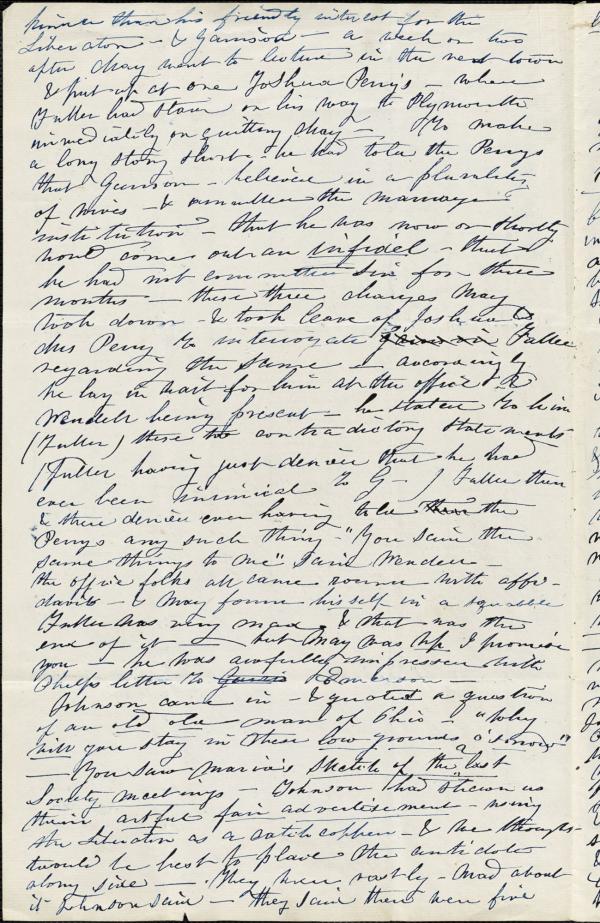 than his friendly interest for the
Liberator - & Garrison - a week or two
after May went to lecture in the next town
& put up at one Joshua Perry's - where
Fuller had been on his way to Plymouth
immediately on quitting May - To make
a long story short - he had told the Perrys
that Garrison - believed in a plurality
of wives - & annulled the marriage
institution - that he was now or shortly
would come out an infidel - that
he had not committed sin for three
months - these three charges May
took down - & took leave of Joshua
Perry to interrogate Fuller
regarding the same - accordingly
he lay in wait for him at the office &
Wendell being present - he stated to him
(Fuller) these contradictory statements
(Fuller having just denied that he had
ever been inimical to G - ) Fuller then
& there denied ever having told the
Perrys any such thing - "You said the
same things to me" said Wendell -
the office folks all came round with affi-
davits - & May found his self in a squabble
Fuller was very mad & that was the
end of it - but May was up I promise
you - he was awfully impressed with
Phelps letter to Emerson -
Johnson came in - & quoted a question
of an old old man of Ohio - "Why
will you stay in these low grounds o' sorrow"
- You saw Maria's sketch of the "last
Society meetings - Johnson had shewn us
their artful fair advertisement - using
the Liberator as a & we thought
twould be best to place the antidote
along side - They were vastly - mad about
it Johnson said - They said there were five